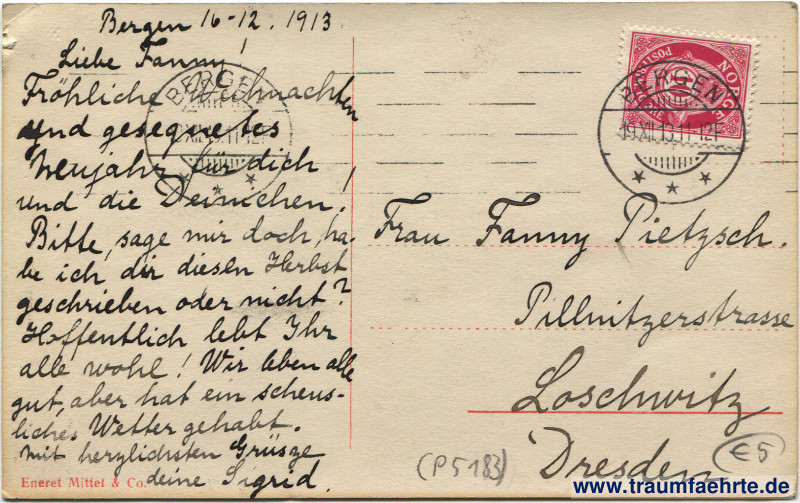 Bergen 16-12. 1913
Liebe Fanny!
Fröhliche Weihnachten
und gesegnetes
Neujahr für dich
und die Deinichen!
Bitte, sage mir doch, ha-
be ich dir diesen Herbst
geschrieben oder nicht?
Hoffentlich lebt Ihr
alle wohl! Wir leben alle
gut, aber hat ein scheus-
liches Wetter gehabt.
mit herzlichsten Grüsze
deine Sigrid.
Eneret Mittet & Co.
NORGE
BERGEN
19 XII 13.11-12F
BERGEN
XII.13.11-12F
Frau Fanny Pietzsch.
Pillnitzerstrasse
Loschwitz
Dresden
(P5183)
€5
www.traumfaehrte.de